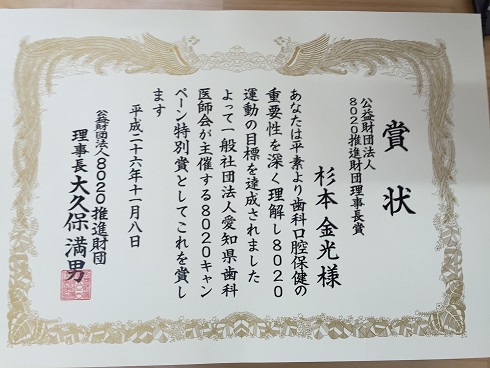 賞状
公益財団法人
8020推進財団理事長賞
杉本金光様
あなたは平素より歯科口腔保健の
重要性を深く理解し8020
運動の目標を達成されました
よって一般社団法人愛知県歯科
医師会が主催する8020キャン
ペーン特別賞としてこれを賞し
ます
平成二十六年十一月八日
公益財団法人8020推進財団
理事長大久保満男